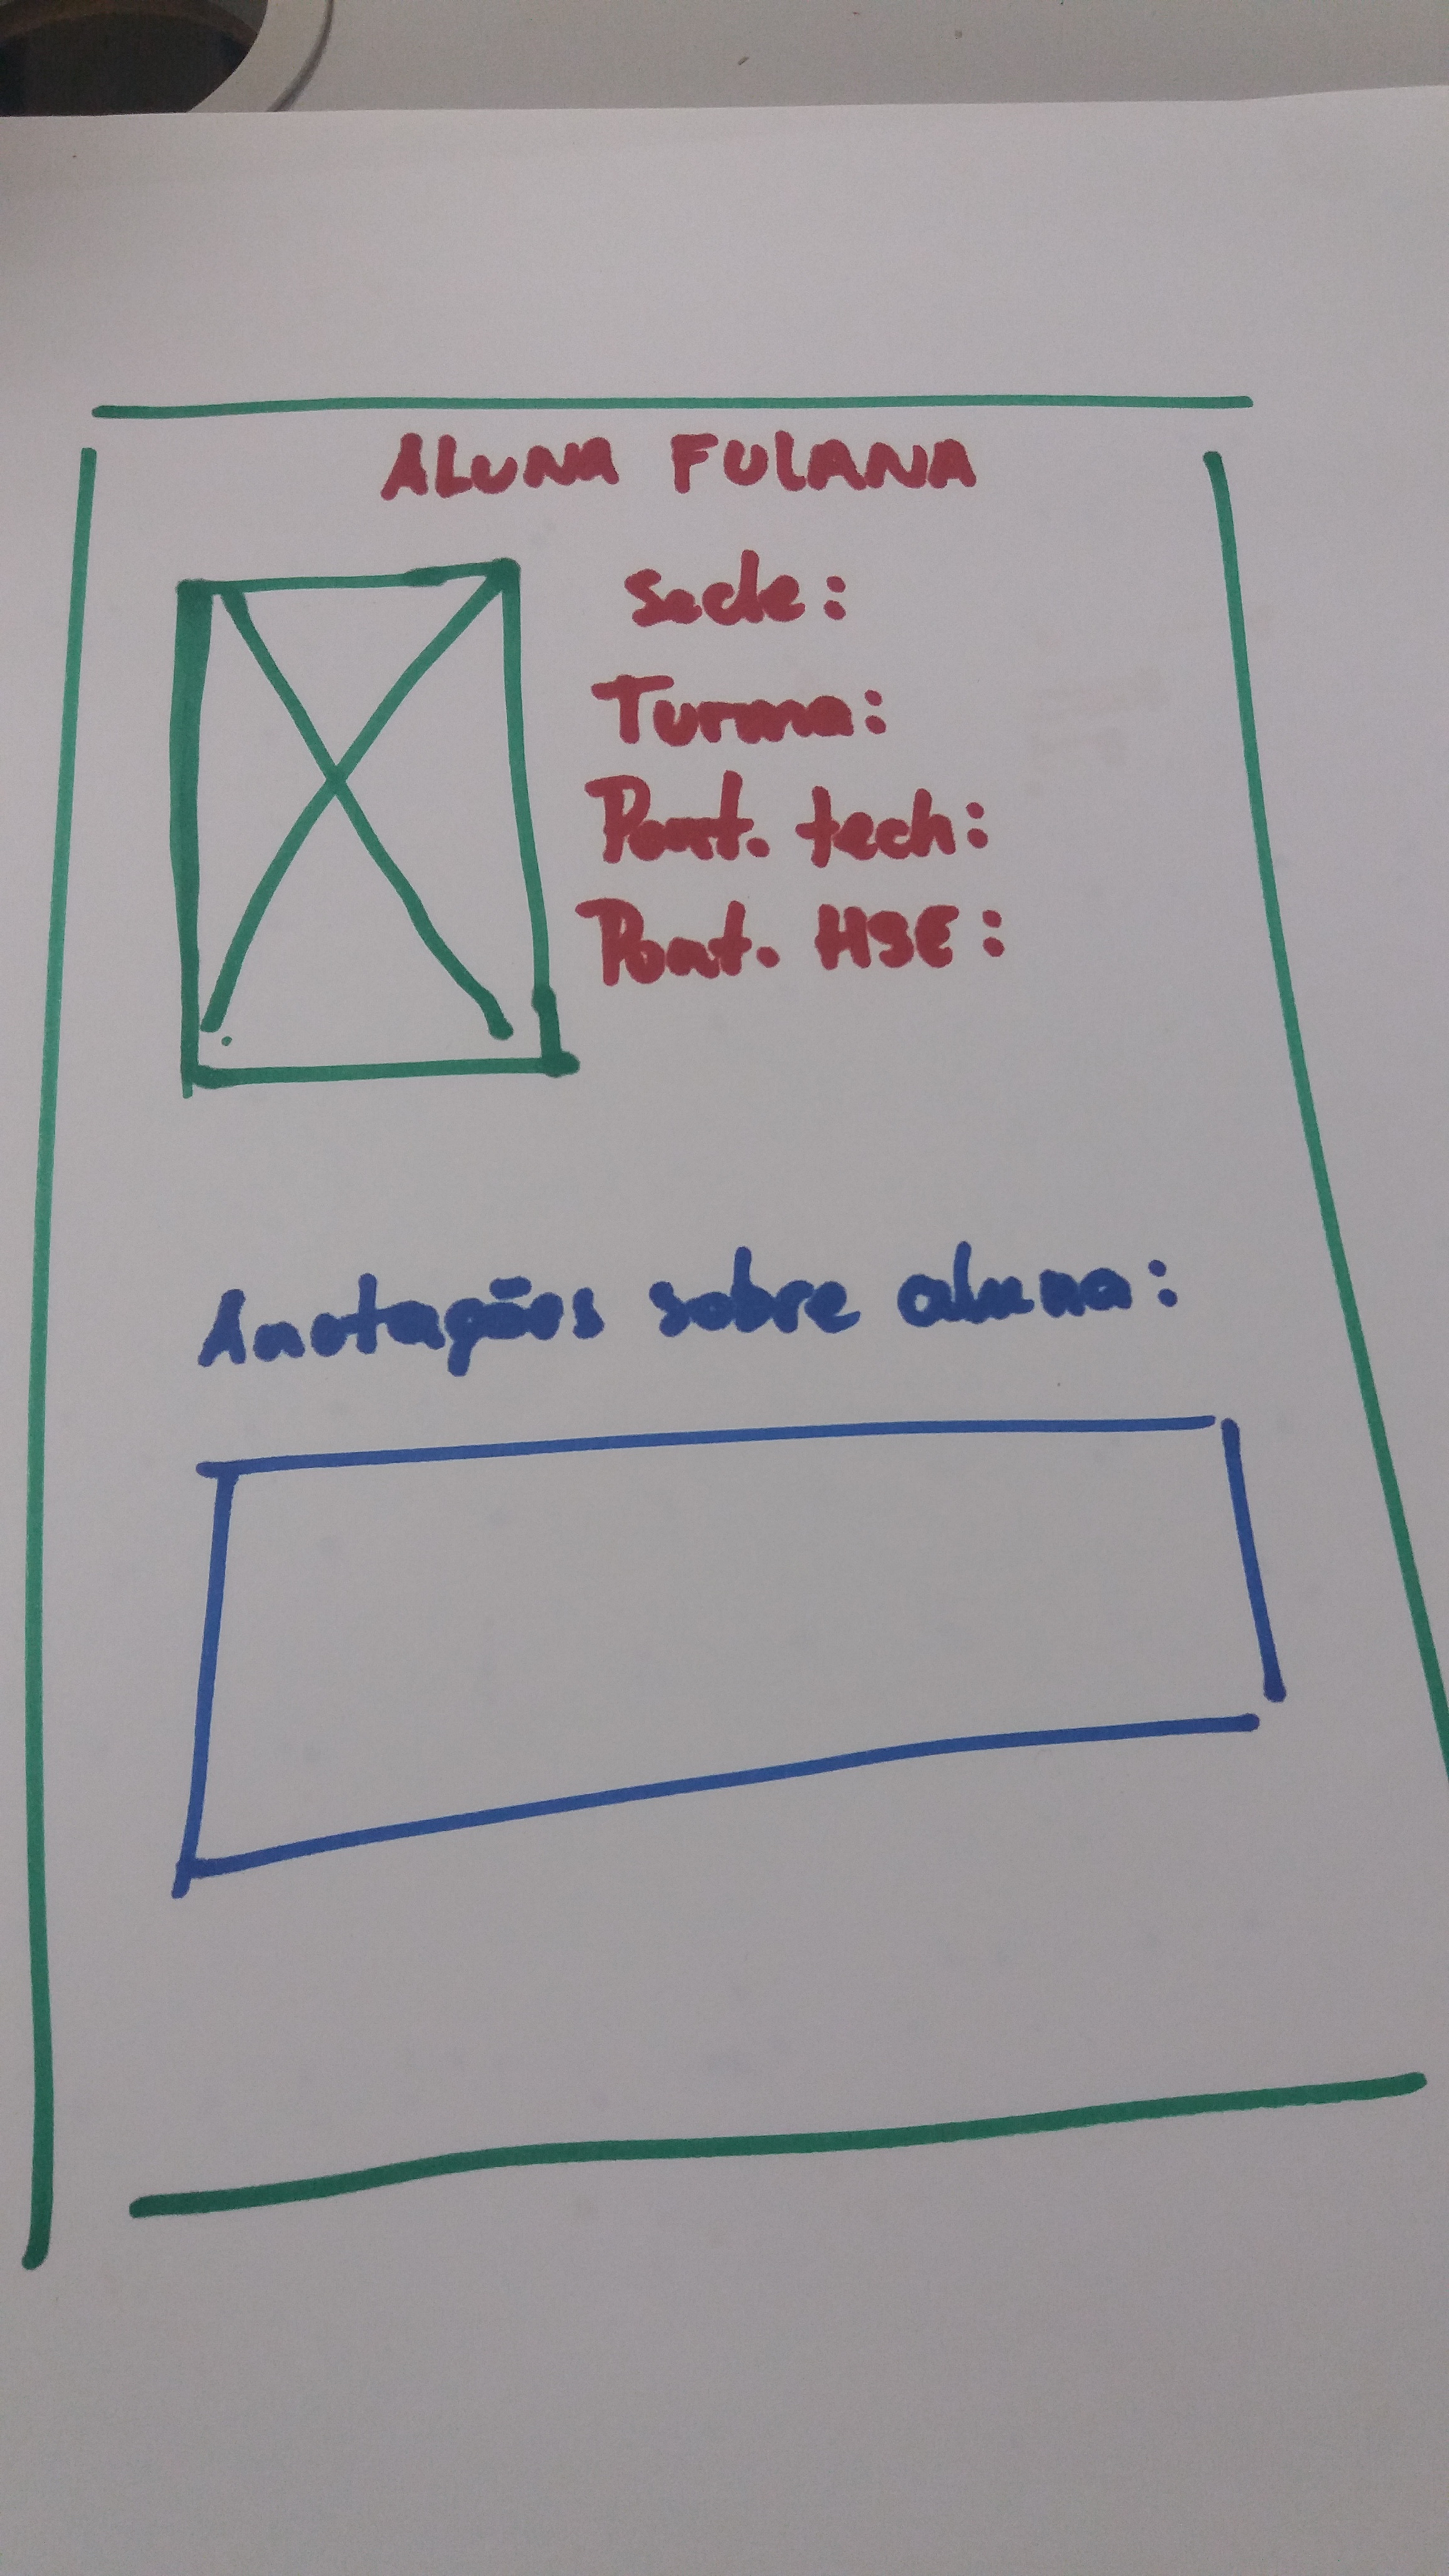 ALUNA FULANA
Sede:
Turma:
Pont. tech:
Pont. HSE:
Anotações sobre aluna: